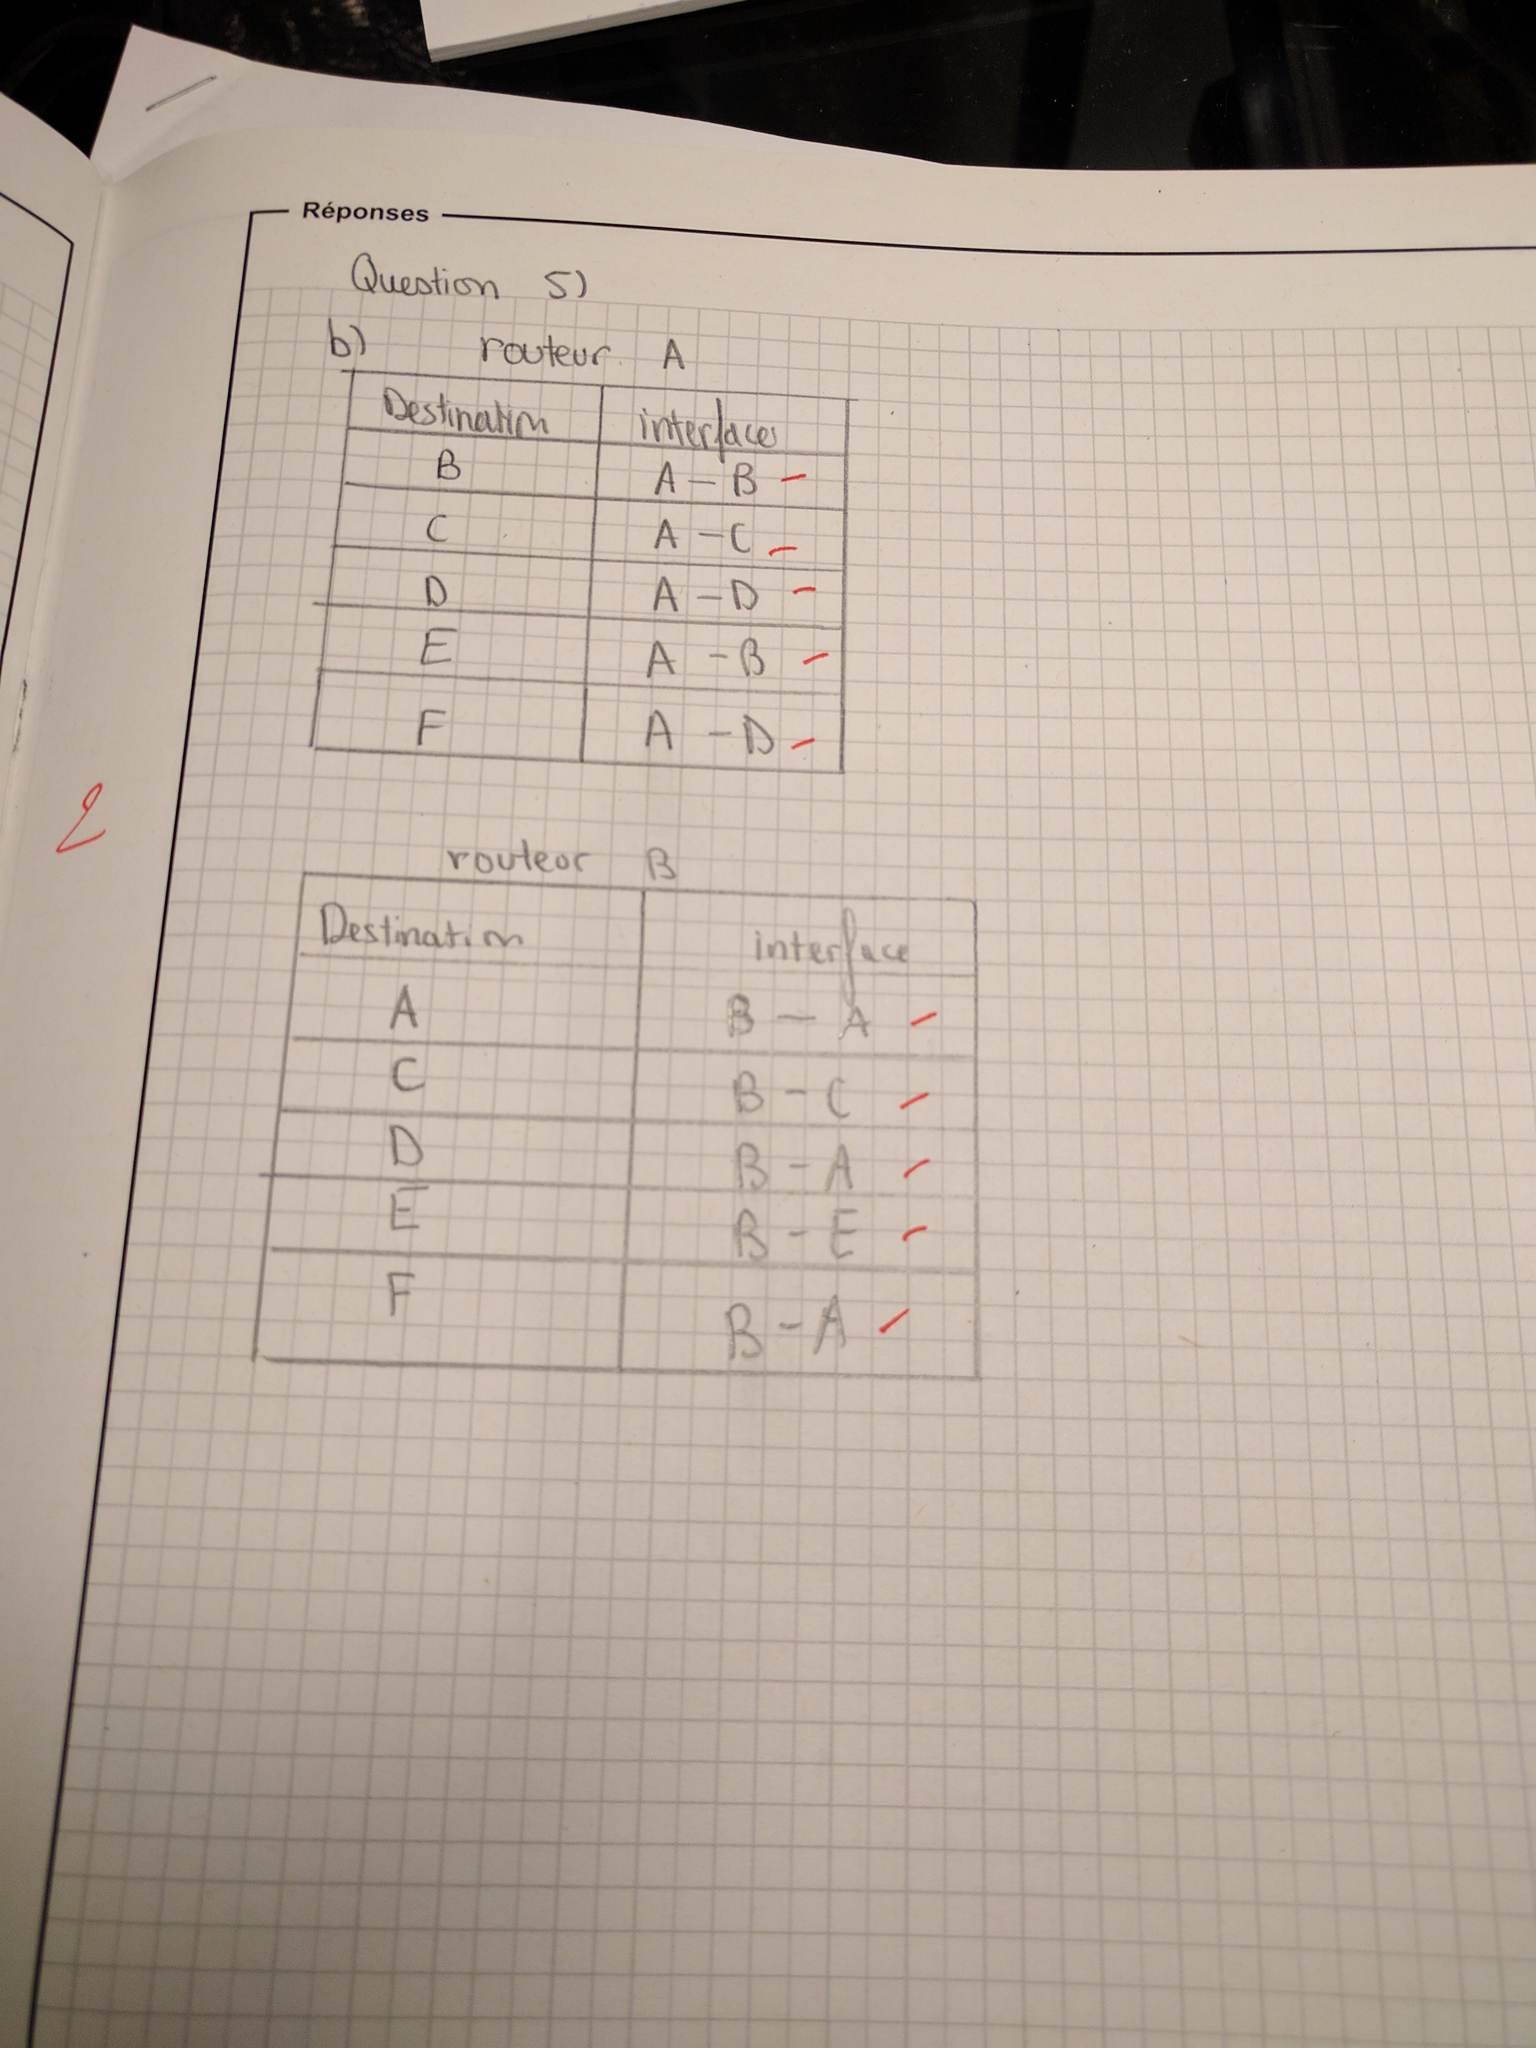 Réponses
Question 5)
b) routeur A
Destination interfaces
B A - B
C A - C
D A - D
E A - B
F A - D
2
routeur B
Destination interface
A B - A
C B - C
D B - A
E B - E
F B - A